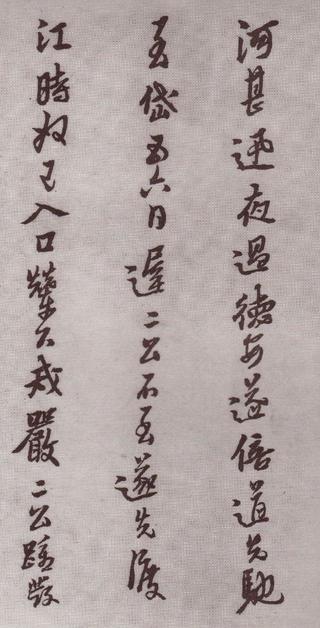 河甚夜過德安遂倍道先馳
至岱五六日遲二公不至遂先渡
江時奴已入口輦下戒嚴二公踵發